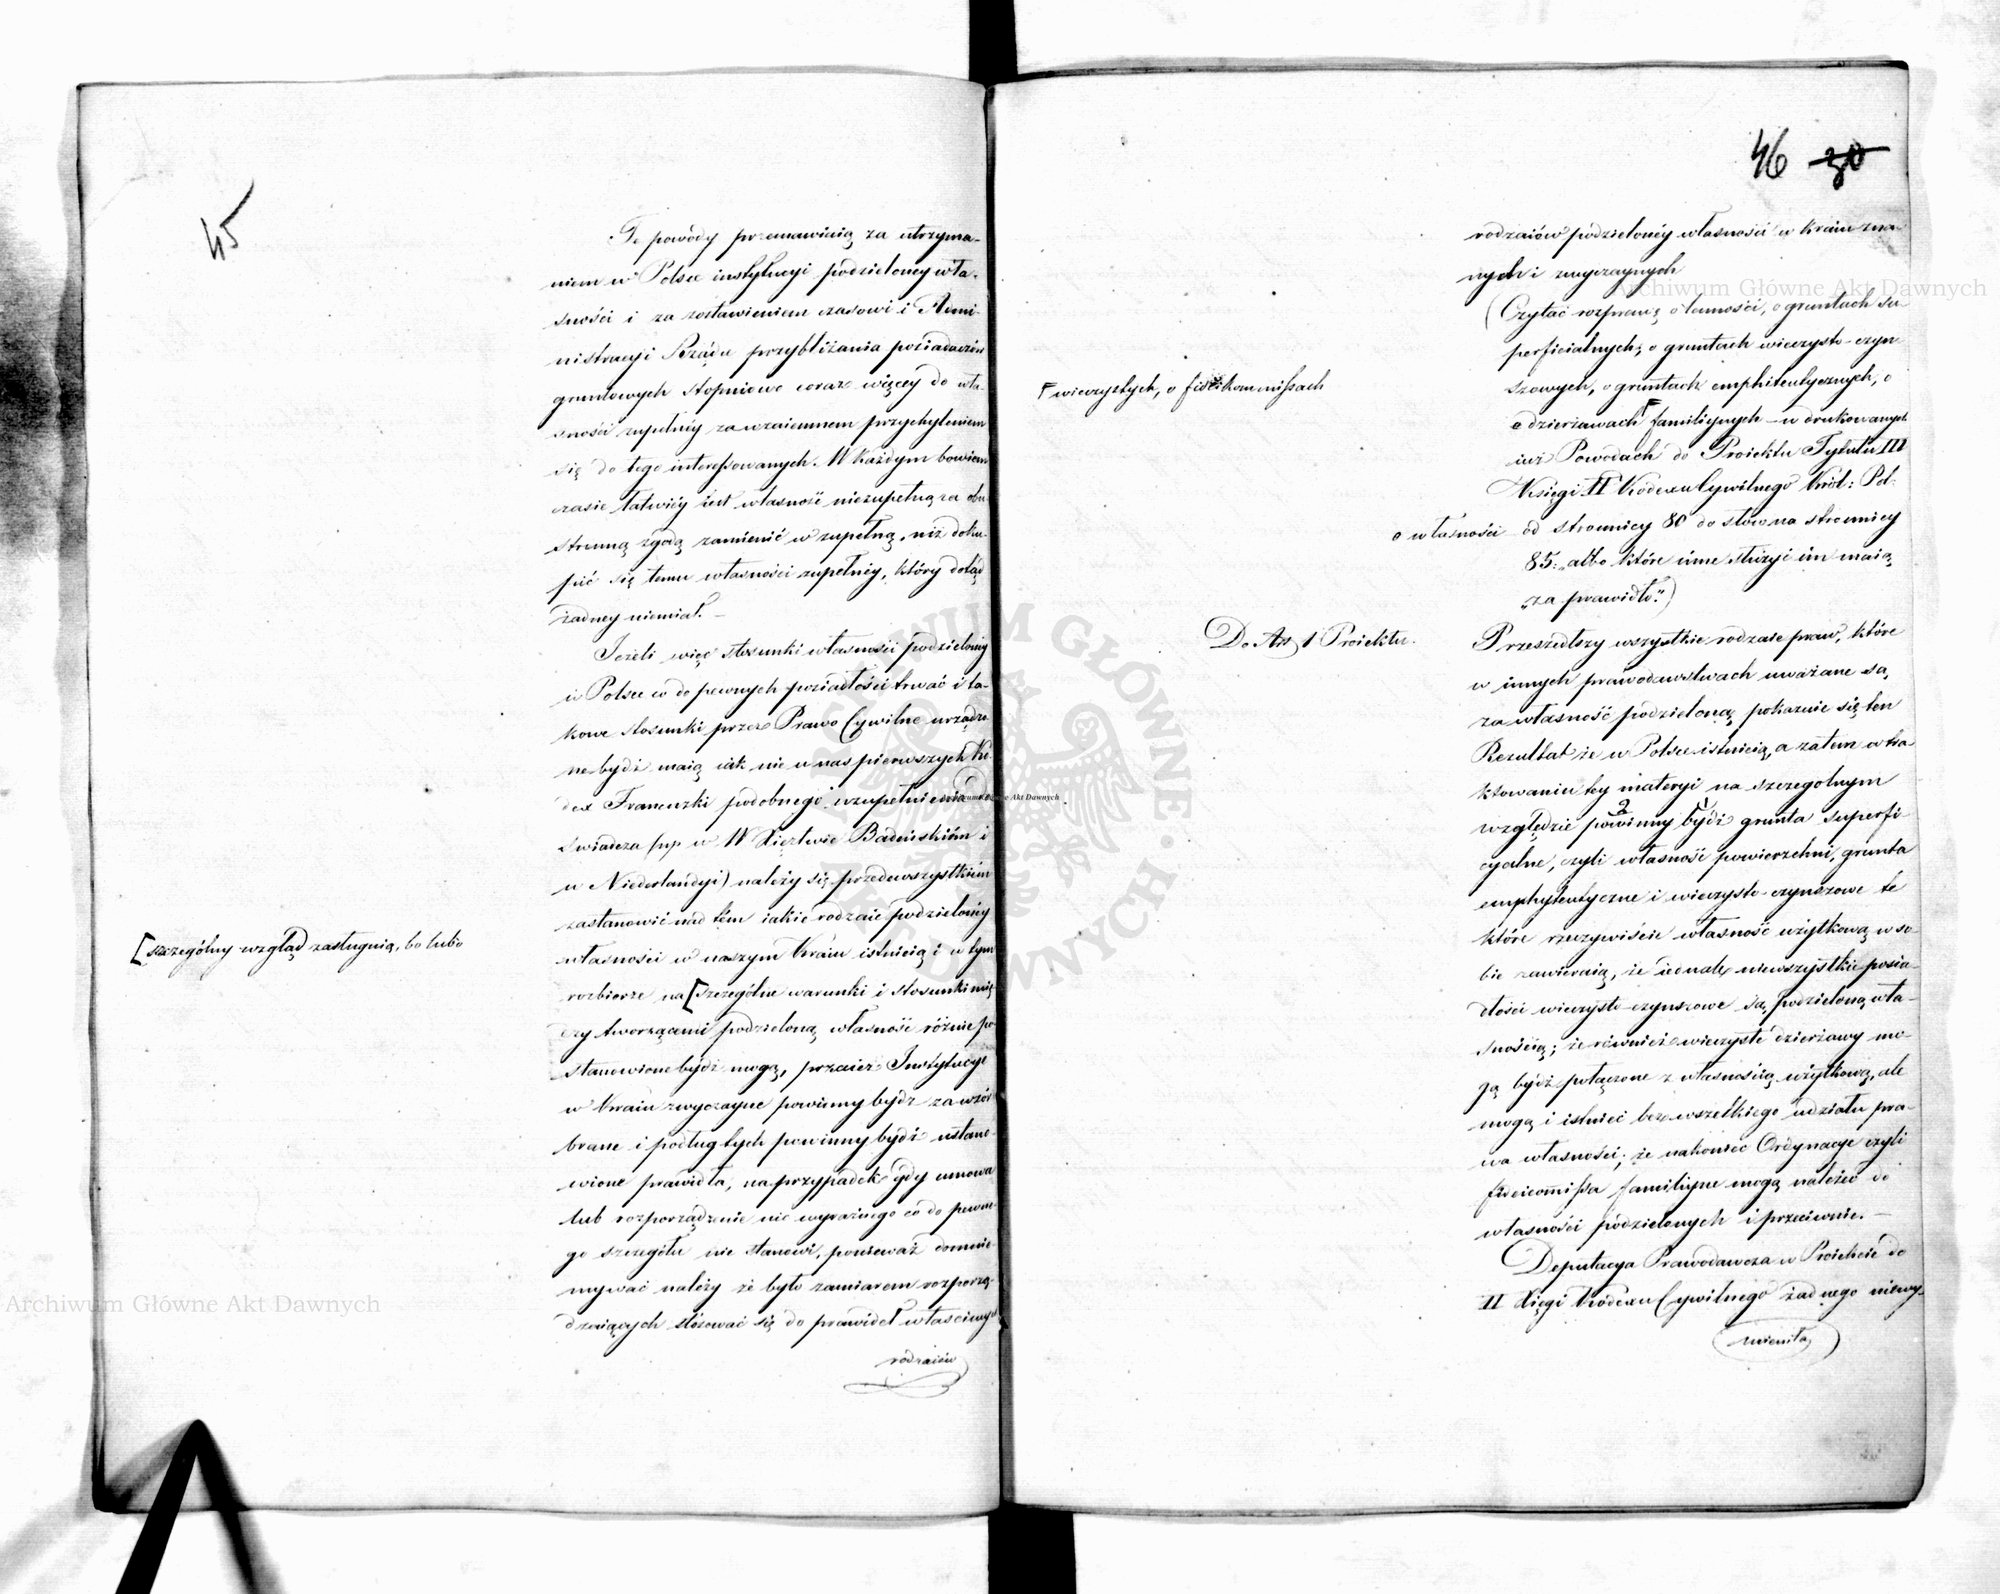 45
Te powody przemawiaią za utrzyma-
niem w Polsce instytucyi podzieloney wła-
sności i za zostawieniem czasowi i Admi-
nistracyi Rządu przybliżania posiadaczów
gruntowych stopniowo coraz więcey do wła-
sności zupełnéy za wzaiemnem przychyleniem
się do tego interessowanych. W każdym bowiem
czasie łatwiéy iest własność niezupełną za obu-
stronną zgodą zamienić w zupełną, niż doku-
pić się temu własności zupełnéy, który dotąd
żadney niemiał. –
Jeżeli więc stosunki własności podzielonéy
w Polsce co do pewnych posiadłości trwać i ta-
kowe stosunki przez Prawo Cywilne urządzo-
ne bydź maią iak nie u nas pierwszych Ko-
dex Francuzki podobnego uzupełnienia do-
świadcza (np. w W. Xięztwie Badeńskiém i
w Niederlandyi) należy się przedewszystkiém
zastanowić nad tém iakie rodzaie podzielonéy
własności w naszym Kraiu istnieią i w tym
rozbiorze na [szczególne warunki i stosunki mię-
[szczególny wzgląd zasługuią, bo lubo
dzy tworzącemi podzieloną własność różnie po-
stanowione bydź mogą, przecież Instytucye
w Kraiu zwyczayne powinny bydź za wzór
brane i podług tych powinny bydź ustano-
wione prawidła, na przypadek gdy umowa
lub rozporządzenie nic wyraźnego co do pewne-
go szczegółu nie stanowi, ponieważ domnie-
mywać należy że było zamiarem rozporzą-
dzaiących stósować się do prawideł właściwych
rodzaiów
46 30
rodzaiów podzielonéy własności w kraiu zna-
nych i zwyczaynych
(Czytać rozprawę o lenności, o gruntach su-
perficialnych, o gruntach wieczysto-czyn-
szowych, o gruntach emphiteutycznych, o
wieczystych, o fideikommissach
o dzierżawach familiynych – w drukowanych
iuż Powodach do Proiektu Tytułu III
Księgi II Kodexu Cywilnego Król: Pol:
o własności od stronnicy 80 do słów na stronnicy
85: „albo które inne służyć im maią
„za prawidło.")
Do Art 1 Proiektu.
Przeszedłszy wszystkie rodzaie praw, które
w innych prawodawstwach uważane są,
za własność podzieloną, pokazuie się ten
Rezultat że w Polsce istnieią, a zatem w tra-
ktowaniu tey materyi na szczególnym
względzie powinny bydź grunta superfi-
cyalne, czyli własność powierzchni, grunta
emphyteutyczne i wieczysto-czynszowe te
które rzeczywiście własność użytkową w so-
bie zawieraią, że iednak niewszystkie posia-
dłości wieczysto-czynszowe są, podzieloną wła-
snością; że również wieczyste dzierżawy mo-
gą bydź połączone z własnością użytkową, ale
mogą i istnieć bez wszelkiego udziału pra-
wa własności; że nakoniec Ordynacye czyli
fideicomissa familiyne mogą należeć do
własności podzielonych i przeciwnie. –
Deputacya Prawodawcza w Proiekcie do
II Xięgi Kodexu Cywilnego żadnego niewy-
mieniła
Archiwum Główne Akt Dawnych
Archiwum Główne Akt Dawnych
ARCHIWUM GŁÓWNE AKT DAWNYCH